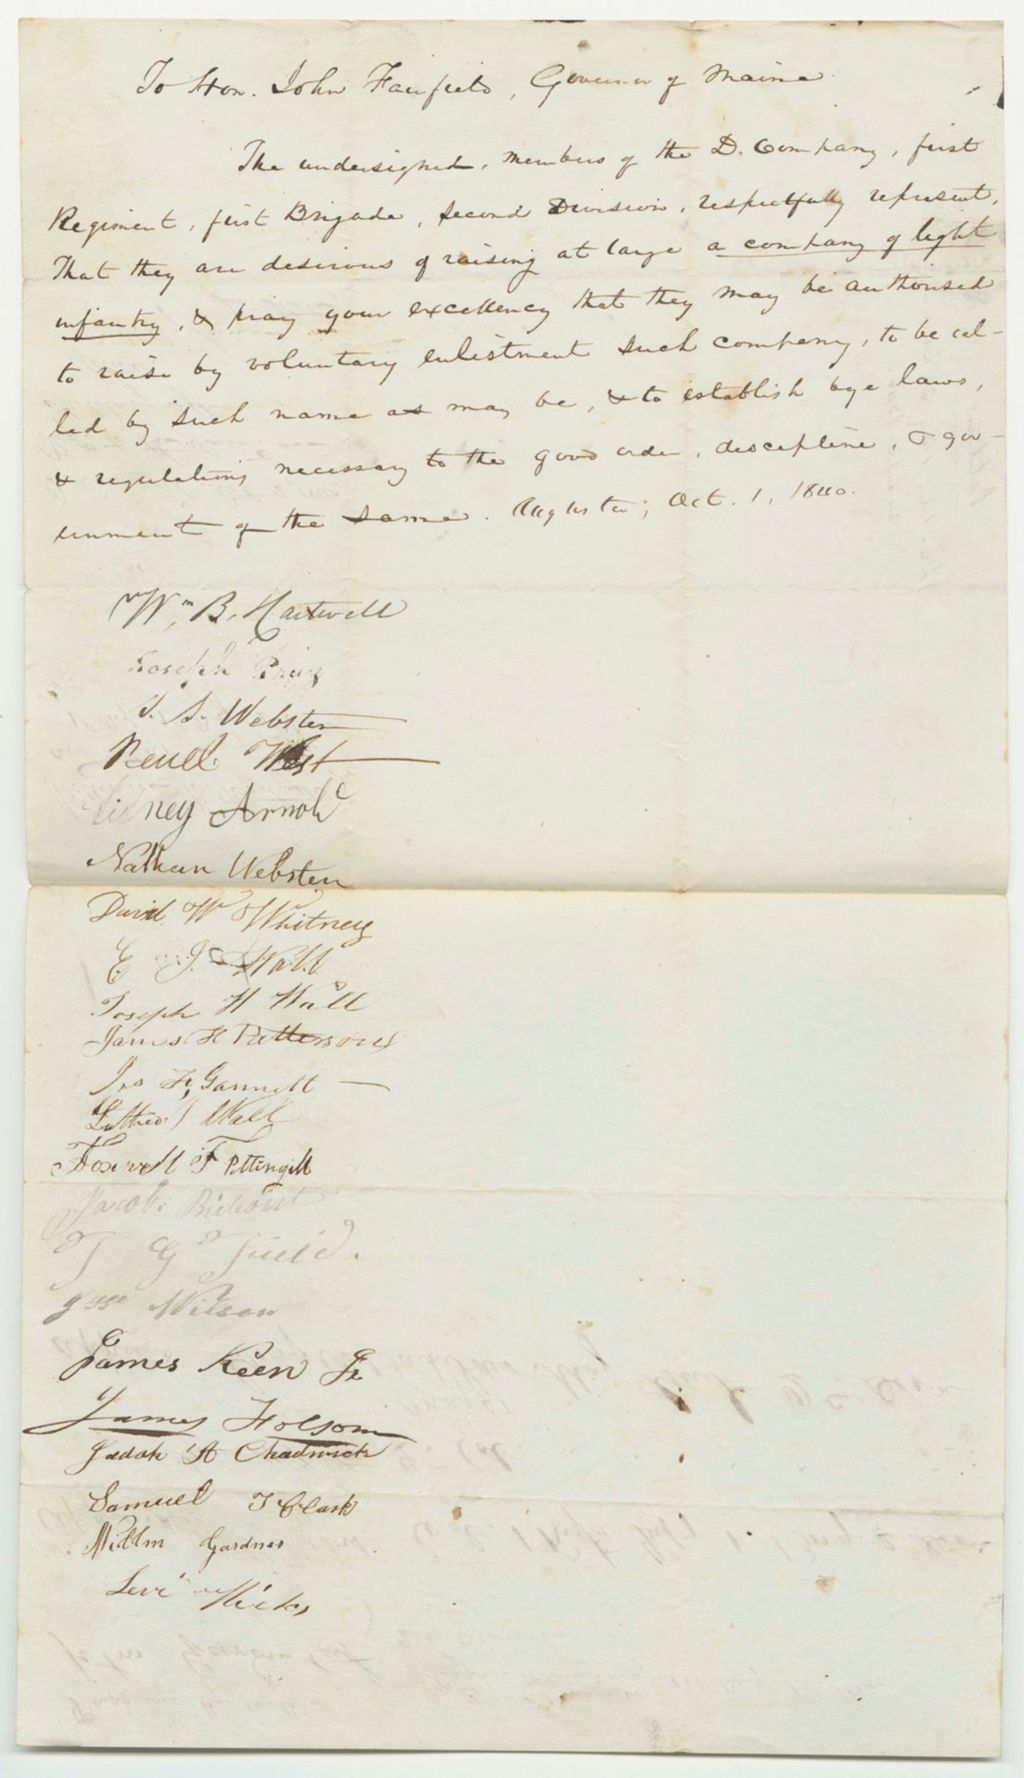 To Hon. John Fairfield, Governor of Maine
The undersigned, members of the D. Company, first
Regiment, first Brigade, Second Division, respectfully represent,
That they are desirous of raising at large a company of light
infantry, & pray your excellency that they may be authorised
to raise by voluntary enlistment such company, to be cal-
led by such name as may be, & to establish bye laws,
& regulations necessary to the good order, discepline, & gov-
ernment of the same. Augusta, Oct. 1, 1840.
Wm B. Hartwell
Joseph
J. S. Webster
Reuel West
Sidney Arnold
Nathan Webster
David W Whitney
E J Wall
Joseph H Wall
James H Patterson
Jos F, Gannett
Luther J Wall
Foxwell F Pettingill
Jacob Rideout
T G Field.
Wilson
James Keen Jr
James Holsom
Zadok A Chadwick
Samuel T Clark
Gardner
Levi Hicks